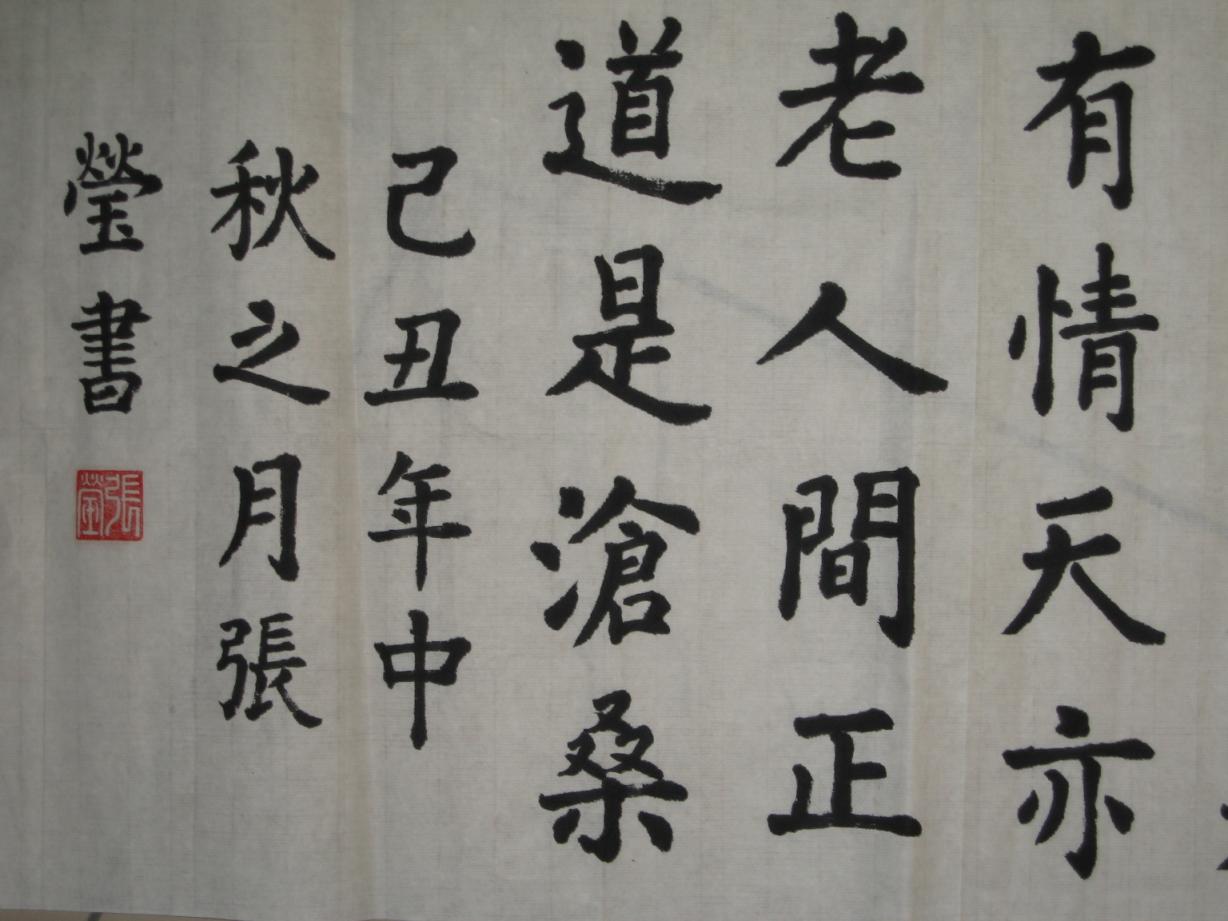 有情天亦
老人間正
道是滄桑
己丑年中
秋之月張
瑩書
張瑩